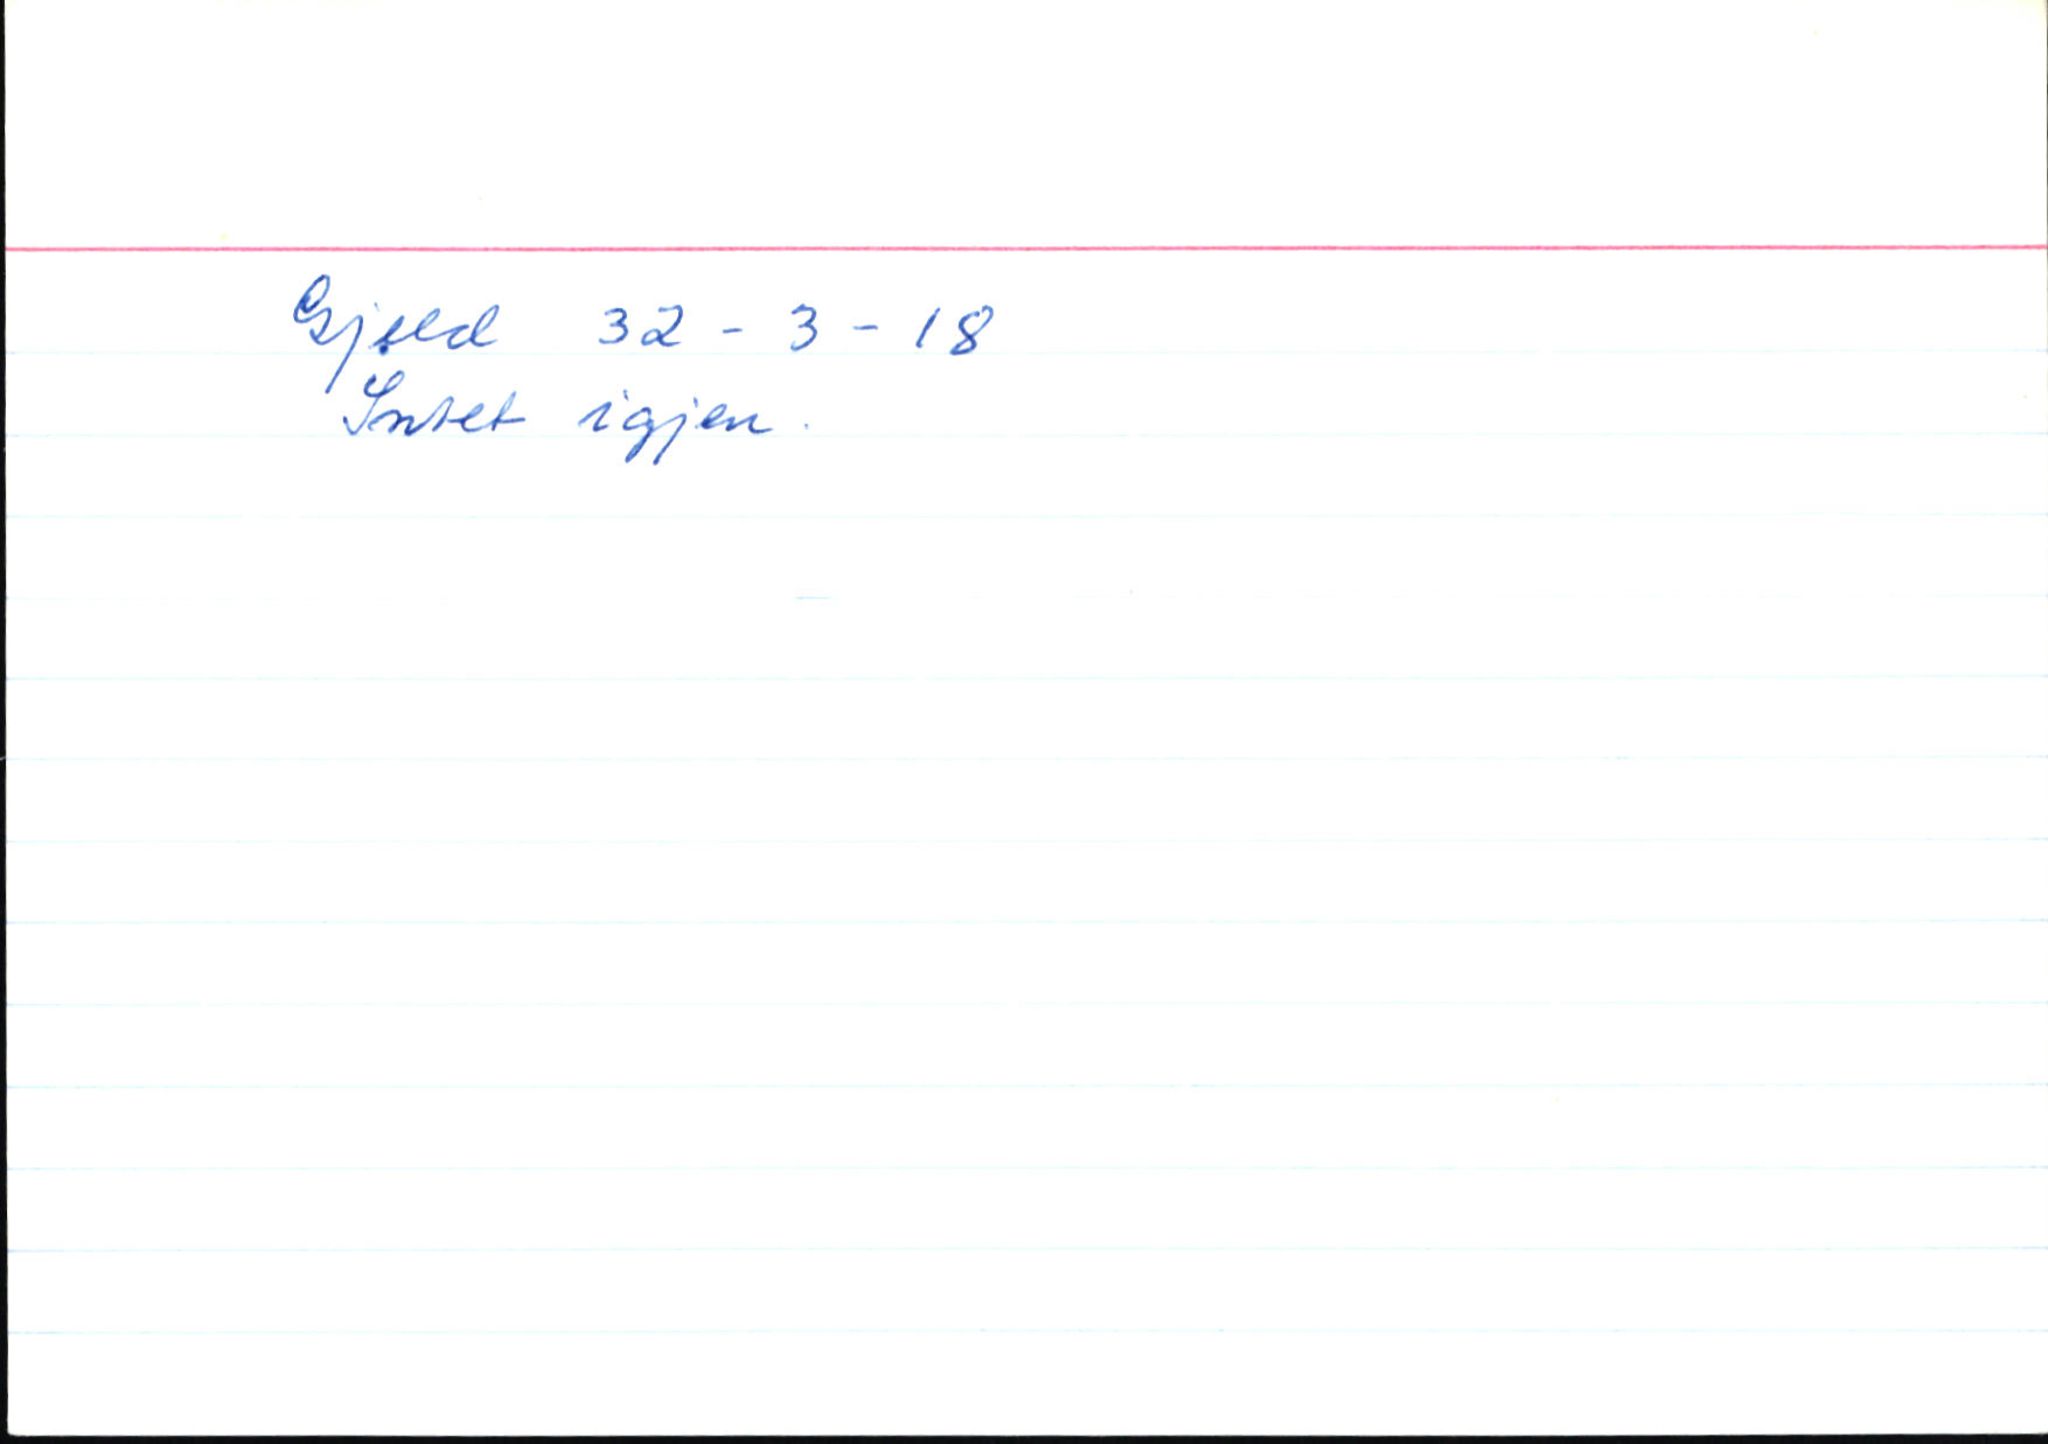 Gjeld 32 - 3 - 18
Intet igjen.